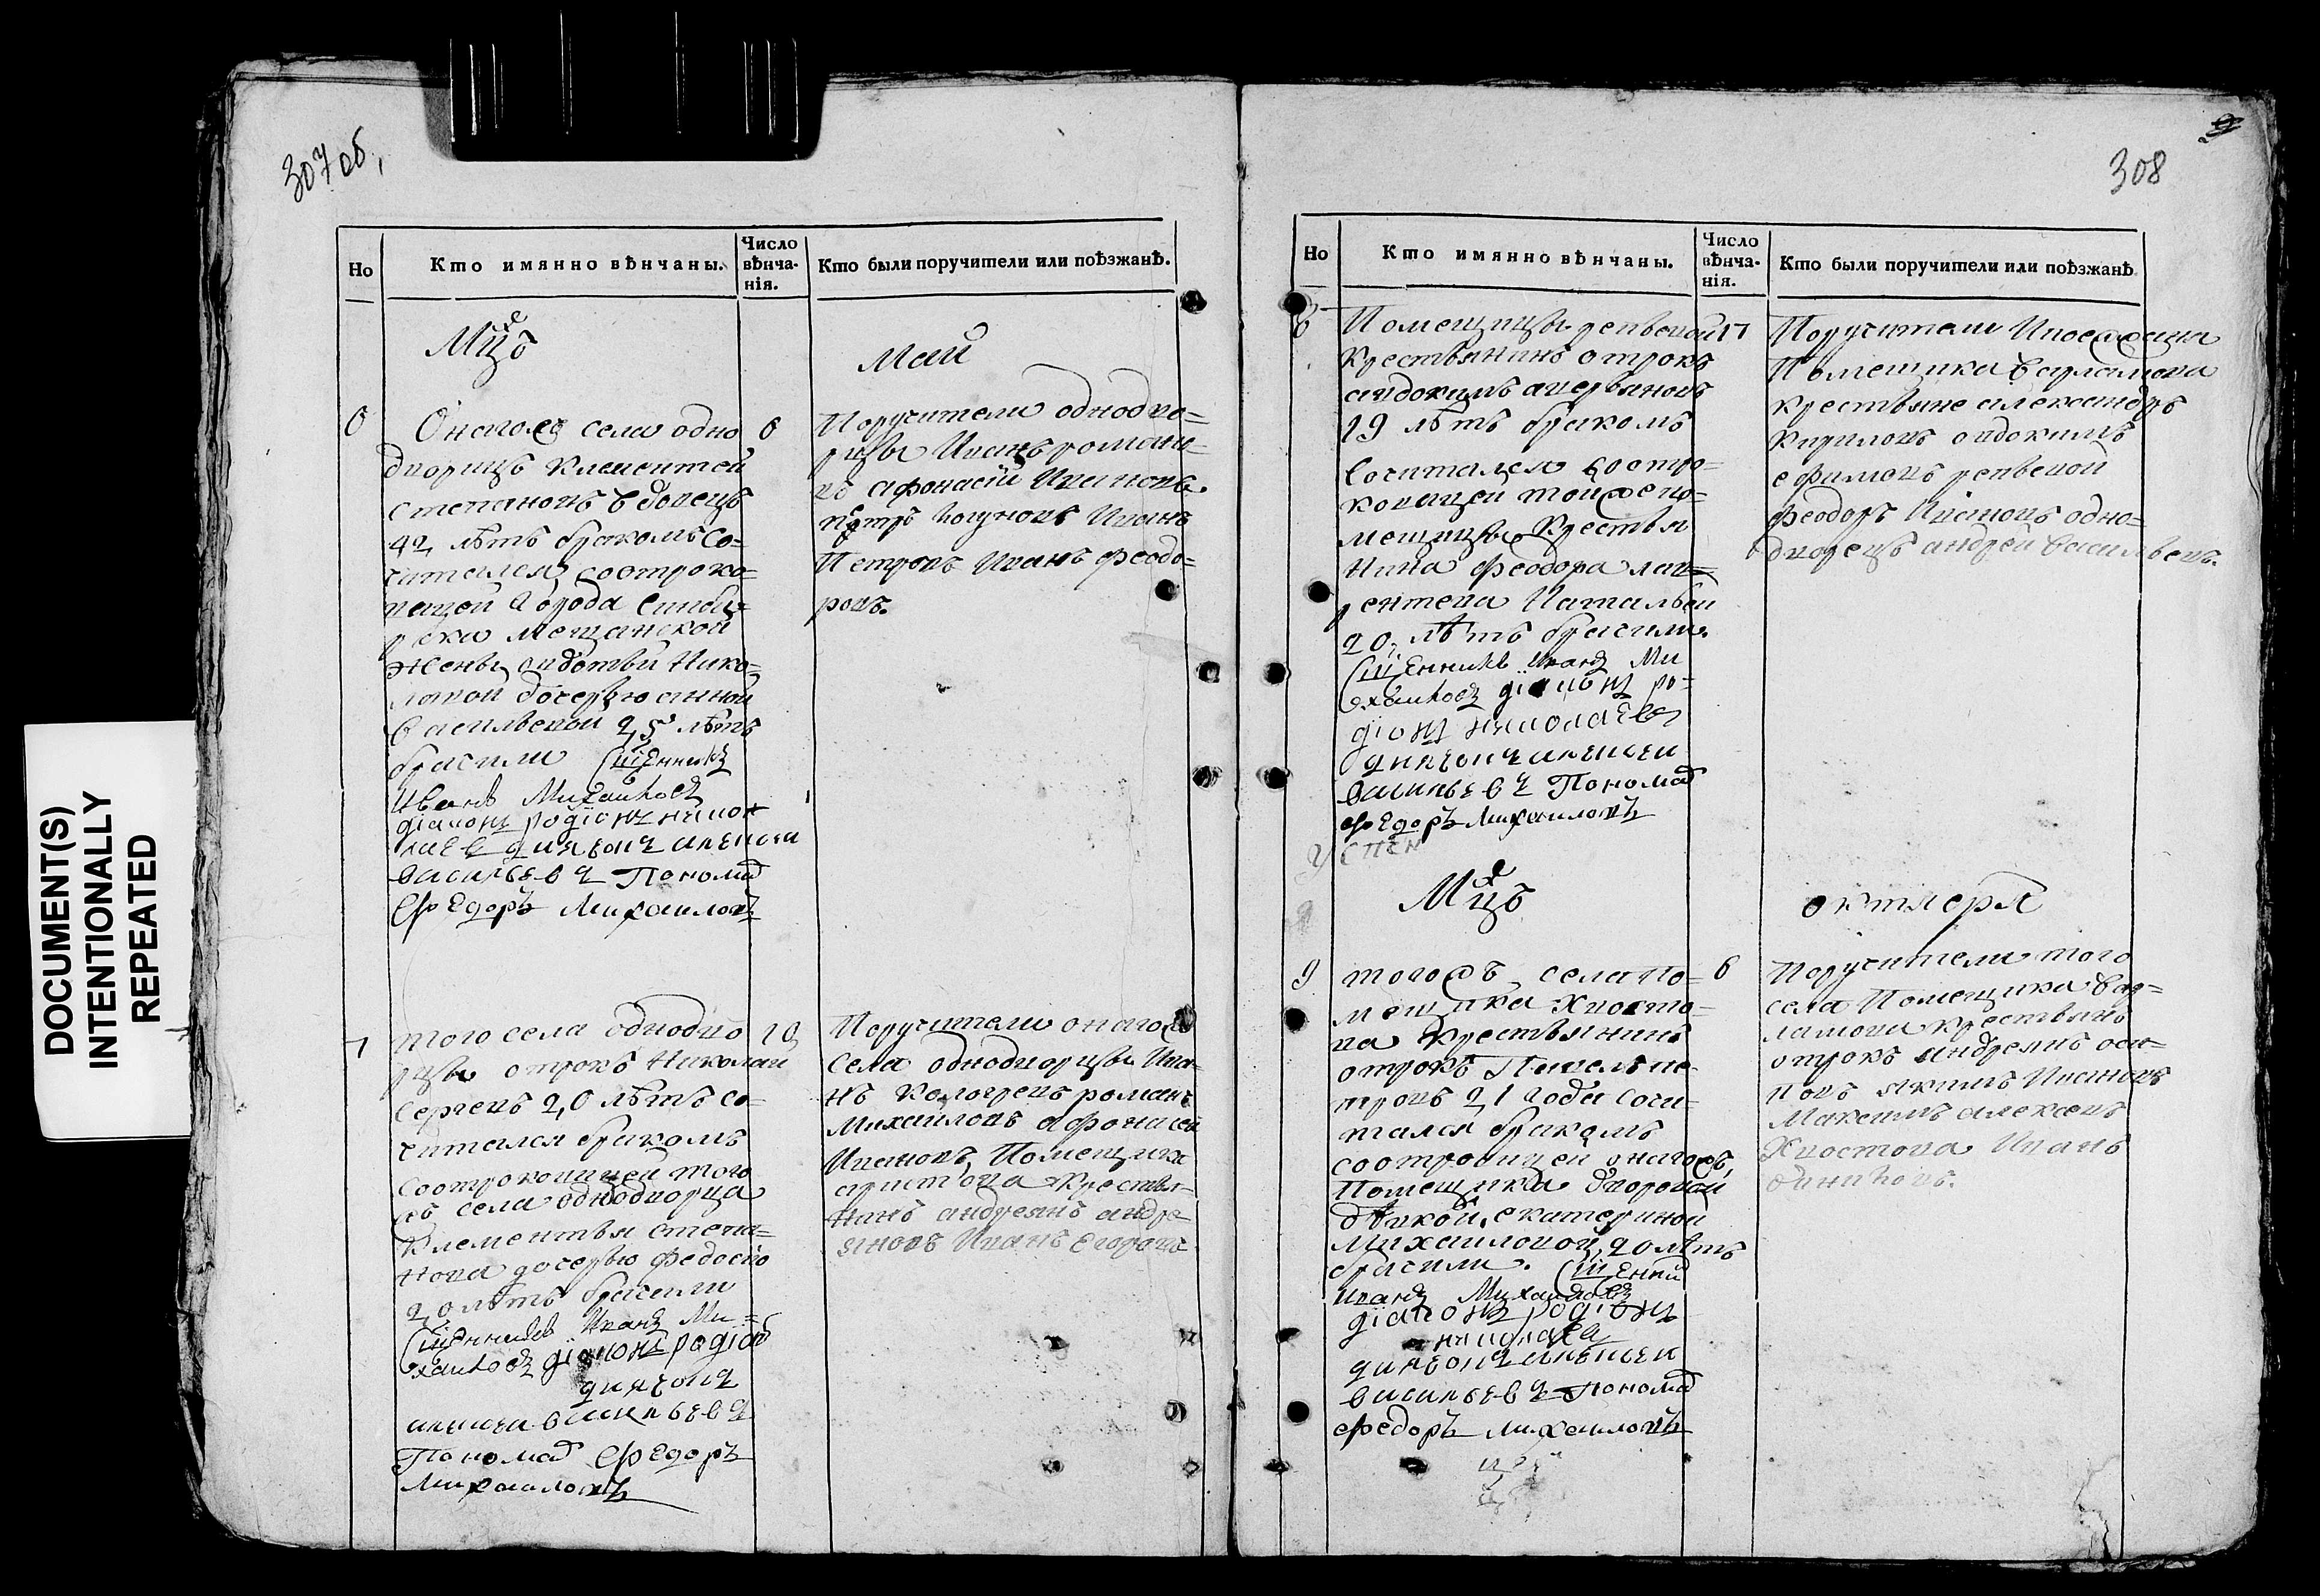 307 об,
Но
Кто имянно вѣнчаны.
Число
вѣнча-
нія.
Кто были поручители или поѣзжанѣ.
Мцъ
Маи
6
Онагожъ села одно
6
дворицъ Клементей
степановъ вдовецъ
42 лѣтъ бракомъ со=
читался соотроко=
вицей города синби=
рска мещанской
жены авдотьи Нико=
довой дочерью анной
васильевой 25 лѣтъ
Священникъ
Иванъ Михайловъ
діаконъ родіонъ никол
дьячокъ алексей
васильевъ Пономар
Федоръ Михаиловъ
Поручители однодво=
рцы Иванъ романо=
въ афонасій Ивановъ
петръ Иванъ
Петровъ Иванъ феодо=
ровъ.
7
того села однодво
10
рцы отрокъ Николай
Сергеевъ 20 лѣтъ со=
читался бракомъ
соотроковицей того
жъ села однодворца
Клементья степа=
нова дочерью федосію
20 лѣтъ
Священникъ Иванъ Ми=
хайловъ діаконъ родіон
дьячокъ
алексеи васильевъ
Пономар Федоръ
Михаиловъ
Поручители онагожъ
села однодворцы Ива=
нъ романъ
Михайловъ афонасей
Ивановъ Помещика
крестья=
нинъ андреянъ андре
яновъ Иванъ егоровъ
DOCUMENT(S)
INTENTIONALLY
REPEATED
9
308
Но
Кто имянно вѣнчаны.
Число
вѣнча-
нія.
Кто были поручители или поѣзжанѣ
8
Помещицы репьевой
17
крестьянинъ отрокъ
авдокимъ аверьяновъ
19 лѣтъ бракомъ
сочитался соотро=
ковицей тойже по=
мещицы крестья
нина феодора лав=
рентева Натальей
20 лѣтъ
Священникъ Иванъ Ми
хайловъ діаконъ ро=
діонъ николаевъ
дьячокъ алексеи
васильевъ Пономар
Федоръ Михаиловъ
Поручители
Помещика варламова
крестьяне александръ
Кириловъ авдокимъ
ефимовъ репьевой
феодоръ Ивановъ одно=
дворецъ андрей васильевъ.
Мцъ
октября
9
тогожъ села по=
6
мещика Хвосто=
ва крестьянинъ
отрокъ Павелъ пе
тровъ 21 года сочи=
тался бракомъ
онагожъ
Помещика дворовой
дѣвкой екатериной
Михайловой 20 лѣтъ
Священник
Иванъ Михайловъ
діаконъ родіонъ
николаевъ
дьячокъ алексеи
васильевъ Пономар
Федоръ Михаиловъ
Поручители того
села Помещика вар=
ламова крестьянъ
отрокъ андреянъ оси=
повъ якимъ Ивановъ
Максимъ алексеевъ
Хвостова Иванъ